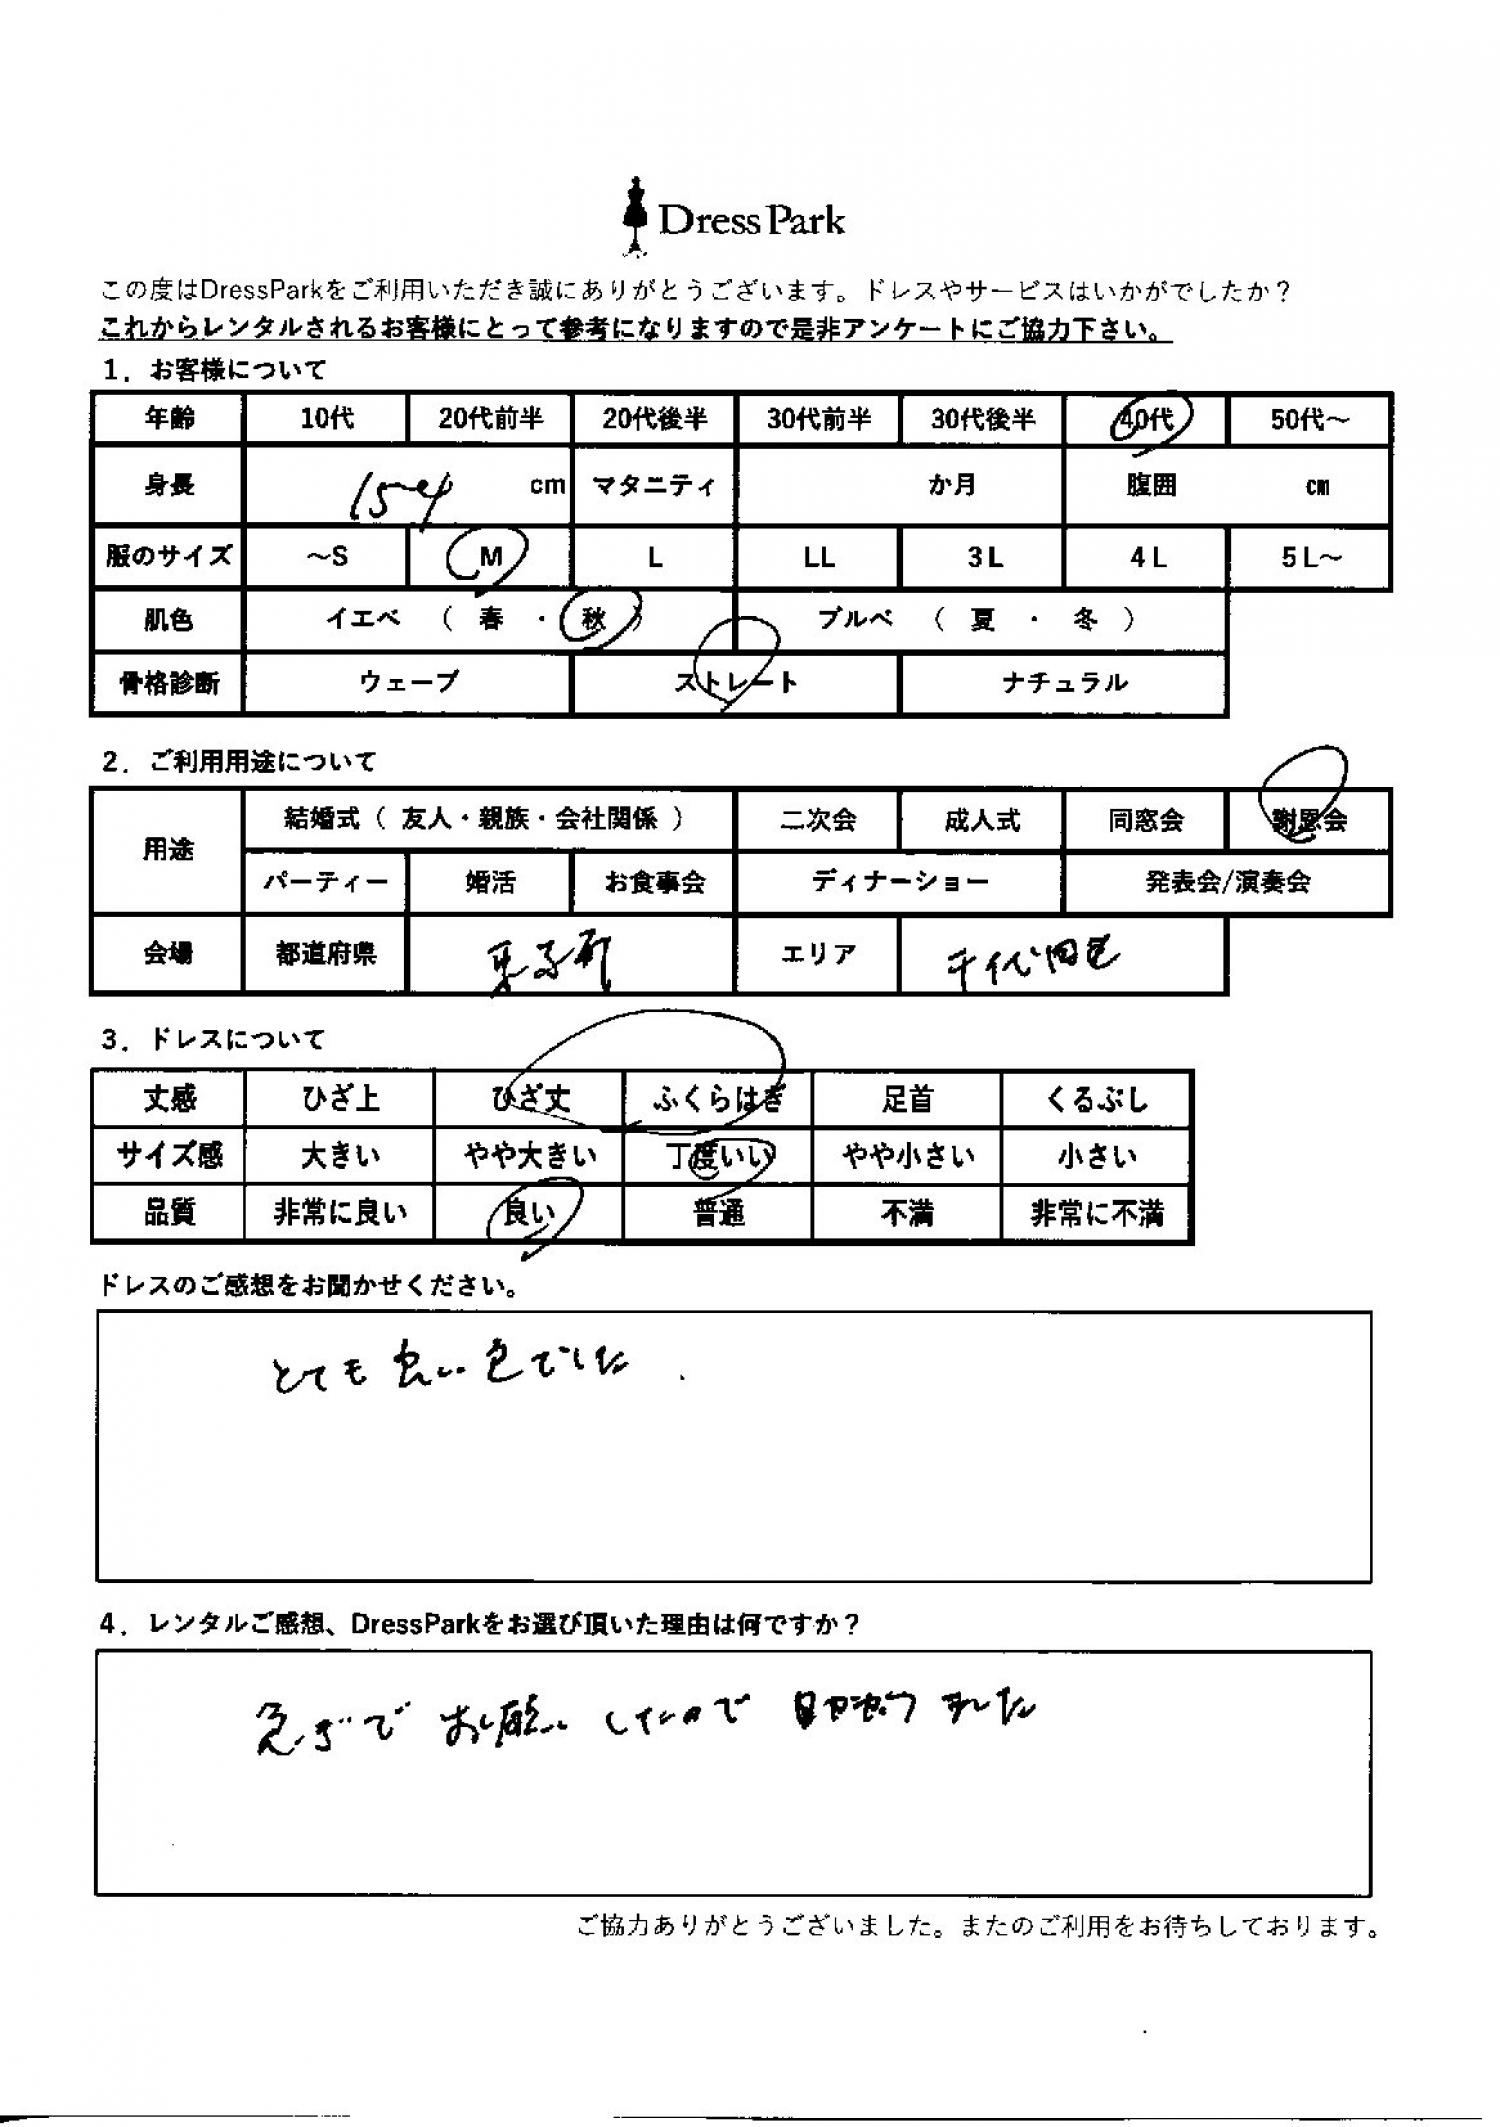 Dress Park
この度はDressParkをご利用いただき誠にありがとうございます。ドレスやサービスはいかがでしたか？
これからレンタルされるお客様にとって参考になりますので是非アンケートにご協力下さい。
1．お客様について
年齢 10代 20代前半 20代後半 30代前半 30代後半 40代 50代～
身長 154 cm マタニティ か月 腹囲 cm
服のサイズ ～S M L LL 3L 4L 5L～
肌色 イエベ （ 春 ・ 秋 ） ブルベ （ 夏 ・ 冬 ）
骨格診断 ウェーブ ストレート ナチュラル
2．ご利用用途について
用途 結婚式（ 友人・親族・会社関係 ） 二次会 成人式 同窓会 謝恩会
パーティー 婚活 お食事会 ディナーショー 発表会/演奏会
会場 都道府県 東京都 エリア 千代田区
3．ドレスについて
丈感 ひざ上 ひざ丈 ふくらはぎ 足首 くるぶし
サイズ感 大きい やや大きい 丁度いい やや小さい 小さい
品質 非常に良い 良い 普通 不満 非常に不満
ドレスのご感想をお聞かせください。
とても良い色でした
4．レンタルご感想、DressParkをお選び頂いた理由は何ですか？
急ぎで お願い したので 助かりました
ご協力ありがとうございました。またのご利用をお待ちしております。